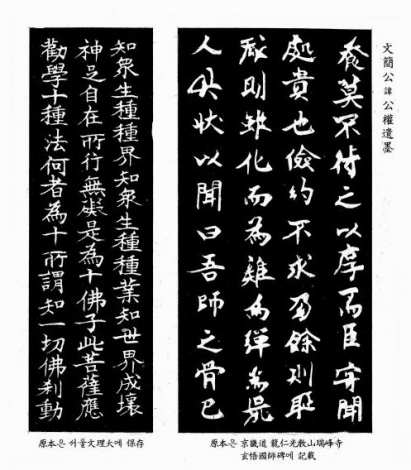 文簡公諱公權遺墨
莫不待之以厚而臣守聞
處貴也儉約不求餘則
則雖化而為雞為彈為
人具狀以聞曰吾師之骨已
原本은 京畿道 龍仁光敎山瑞峰寺
玄悟國師碑에 記載
知衆生種種界知衆生種種業知世界成壞
神足自在所行無礙是為十佛子此菩薩應
勸學十種法何者為十所謂知一切佛刹動
原本은 서울文理大에 保存